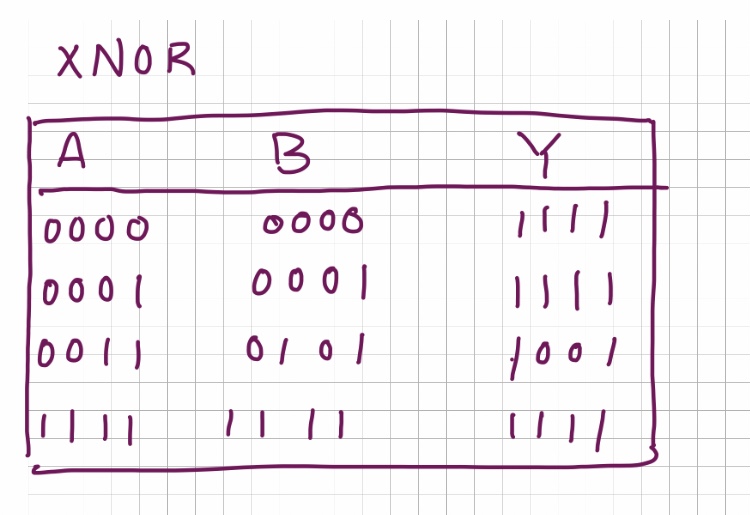 XNOR
A B Y
0000 0000 1111
0001 0001 1111
0011 0101 1001
1111 1111 1111